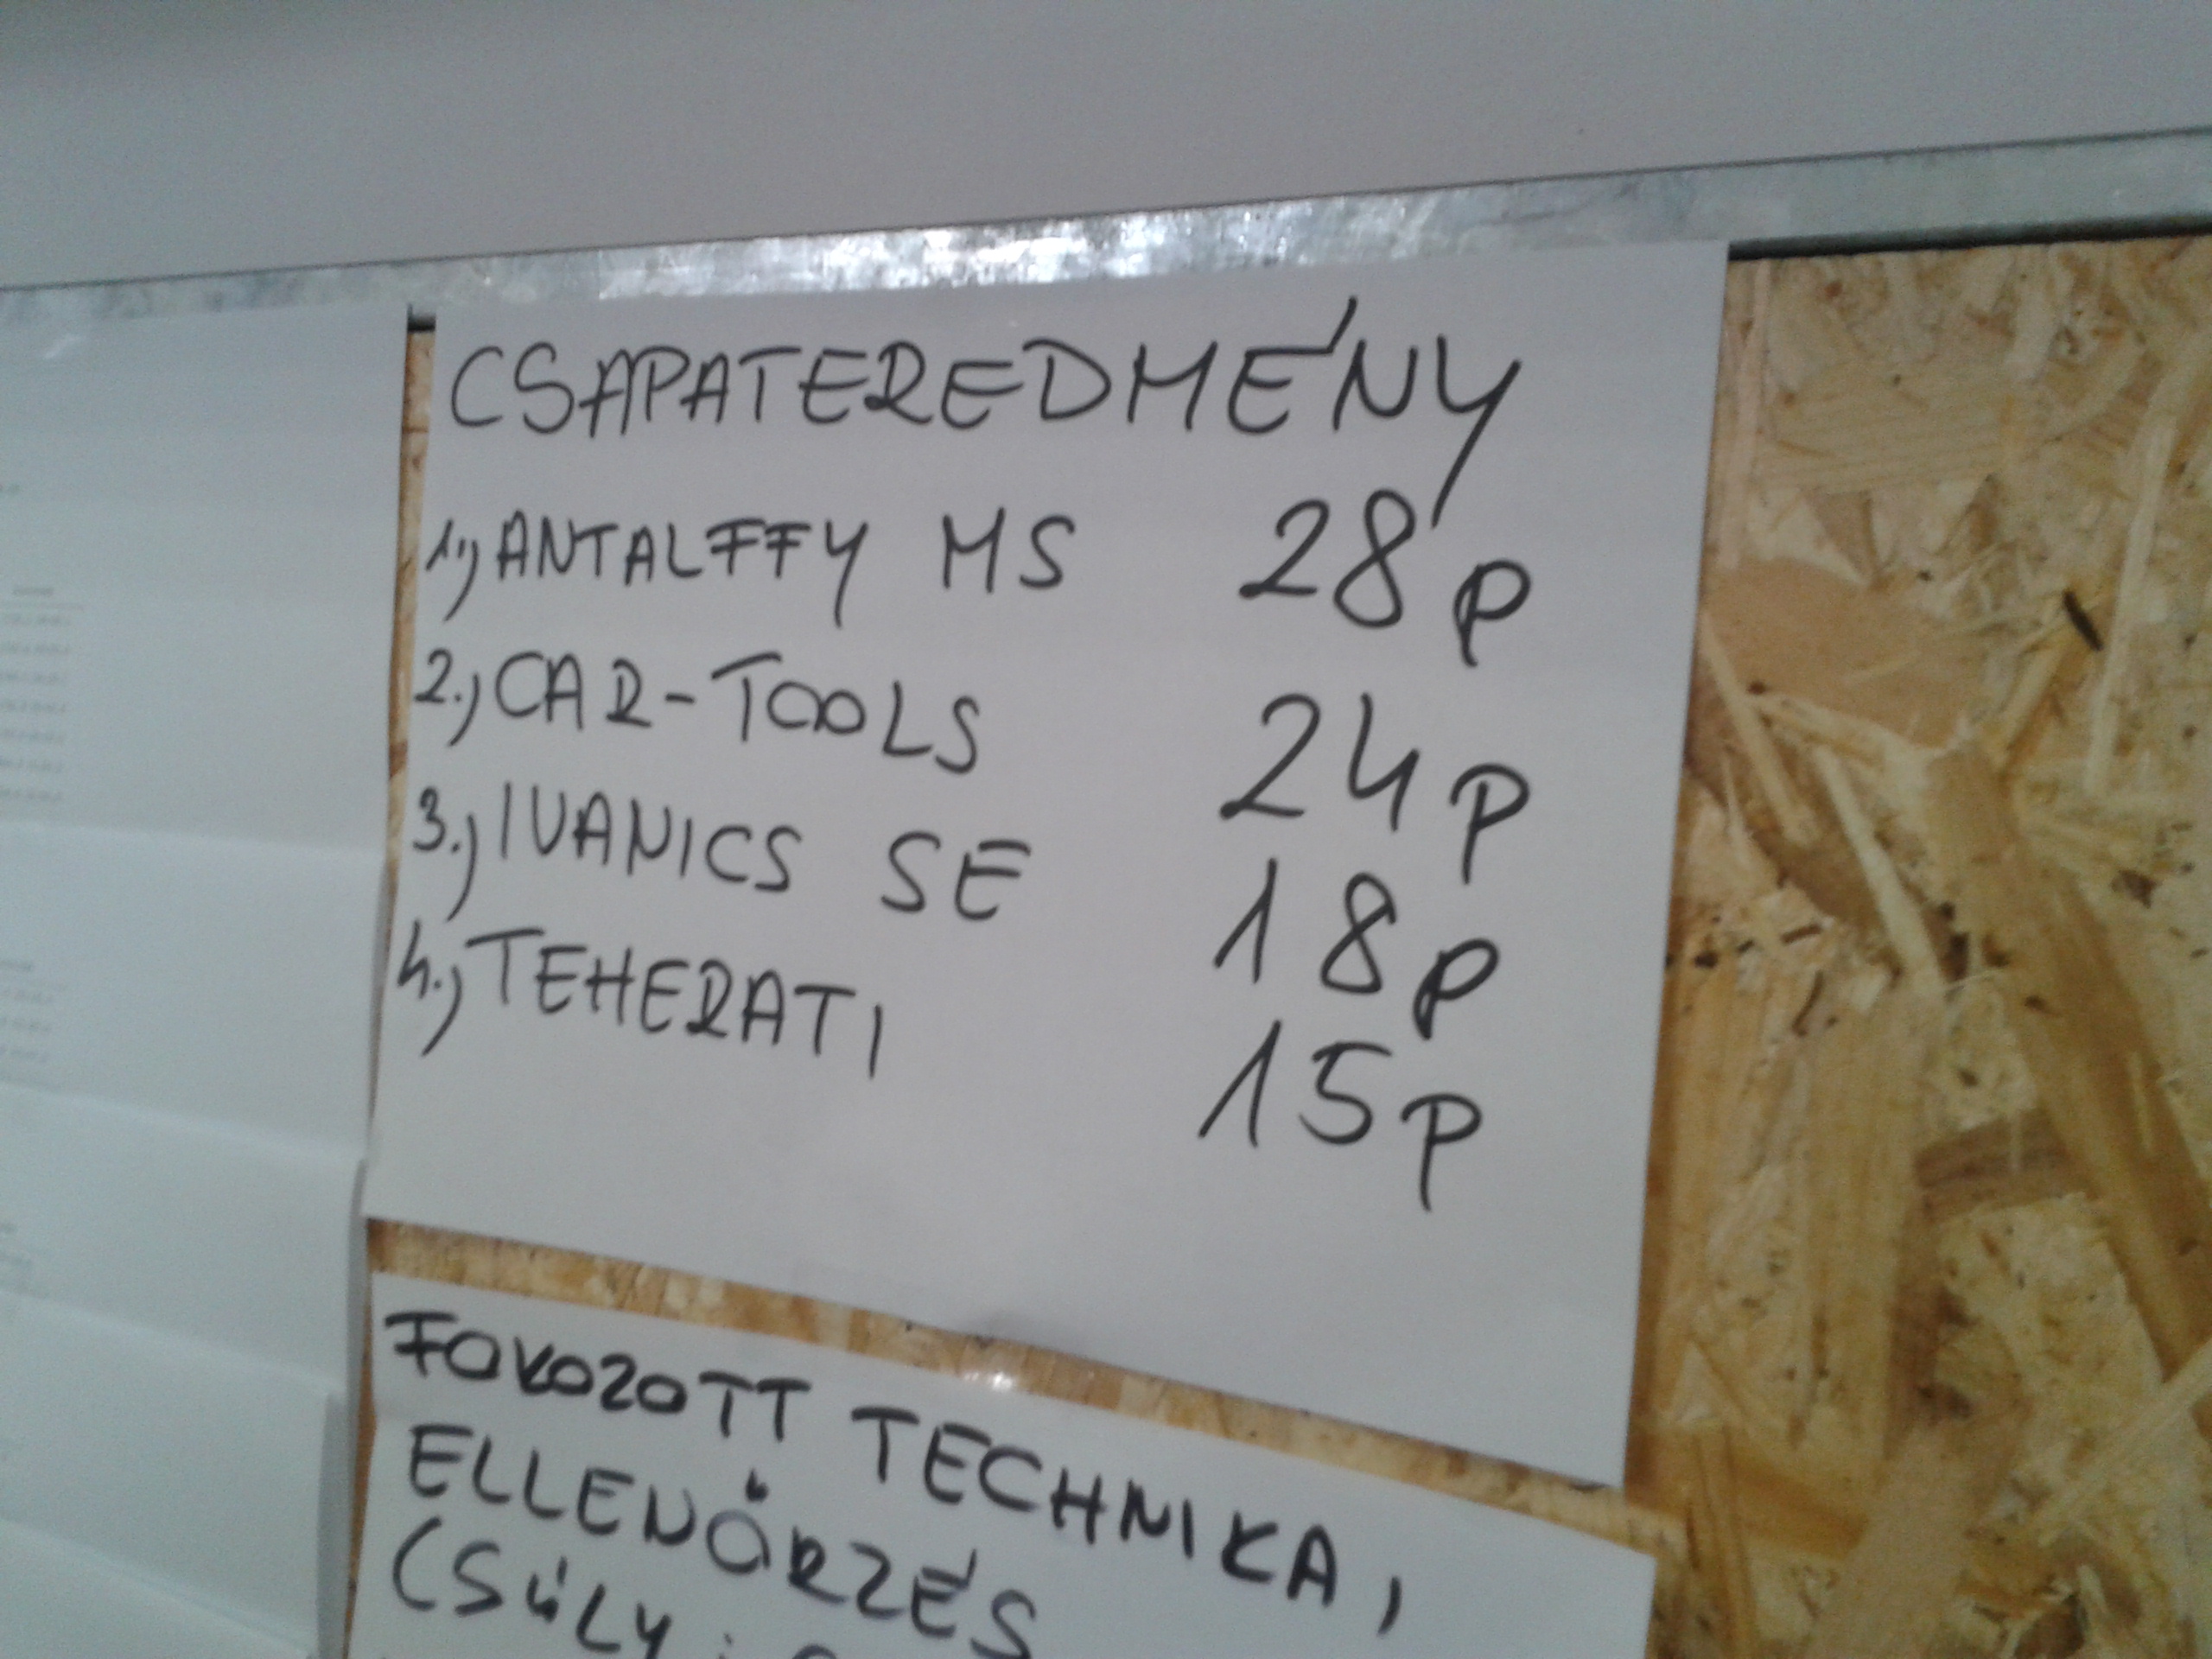 CSAPATEREDMÉNY
1.) ANTALFFY MS 28 P
2.) CAR-TOOLS 24 P
3.) IVANICS SE 18 P
4.) TEHERATI 15 P
FOKOZOTT TECHNIKA,
ELLENŐRZÉS
(SÚLY